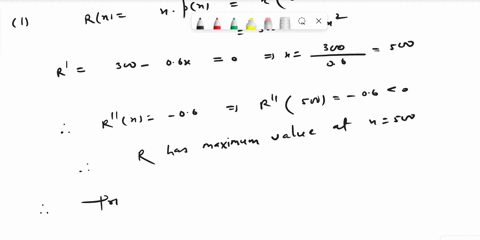 (1) R(n) = n · p(n) = n²
R' = 300 - 0.6x = 0 ⇒ n = 300/0.6 = 500
∴ R''(n) = -0.6 ⇒ R''(500) = -0.6 < 0
∴ R has maximum value at n = 500
∴